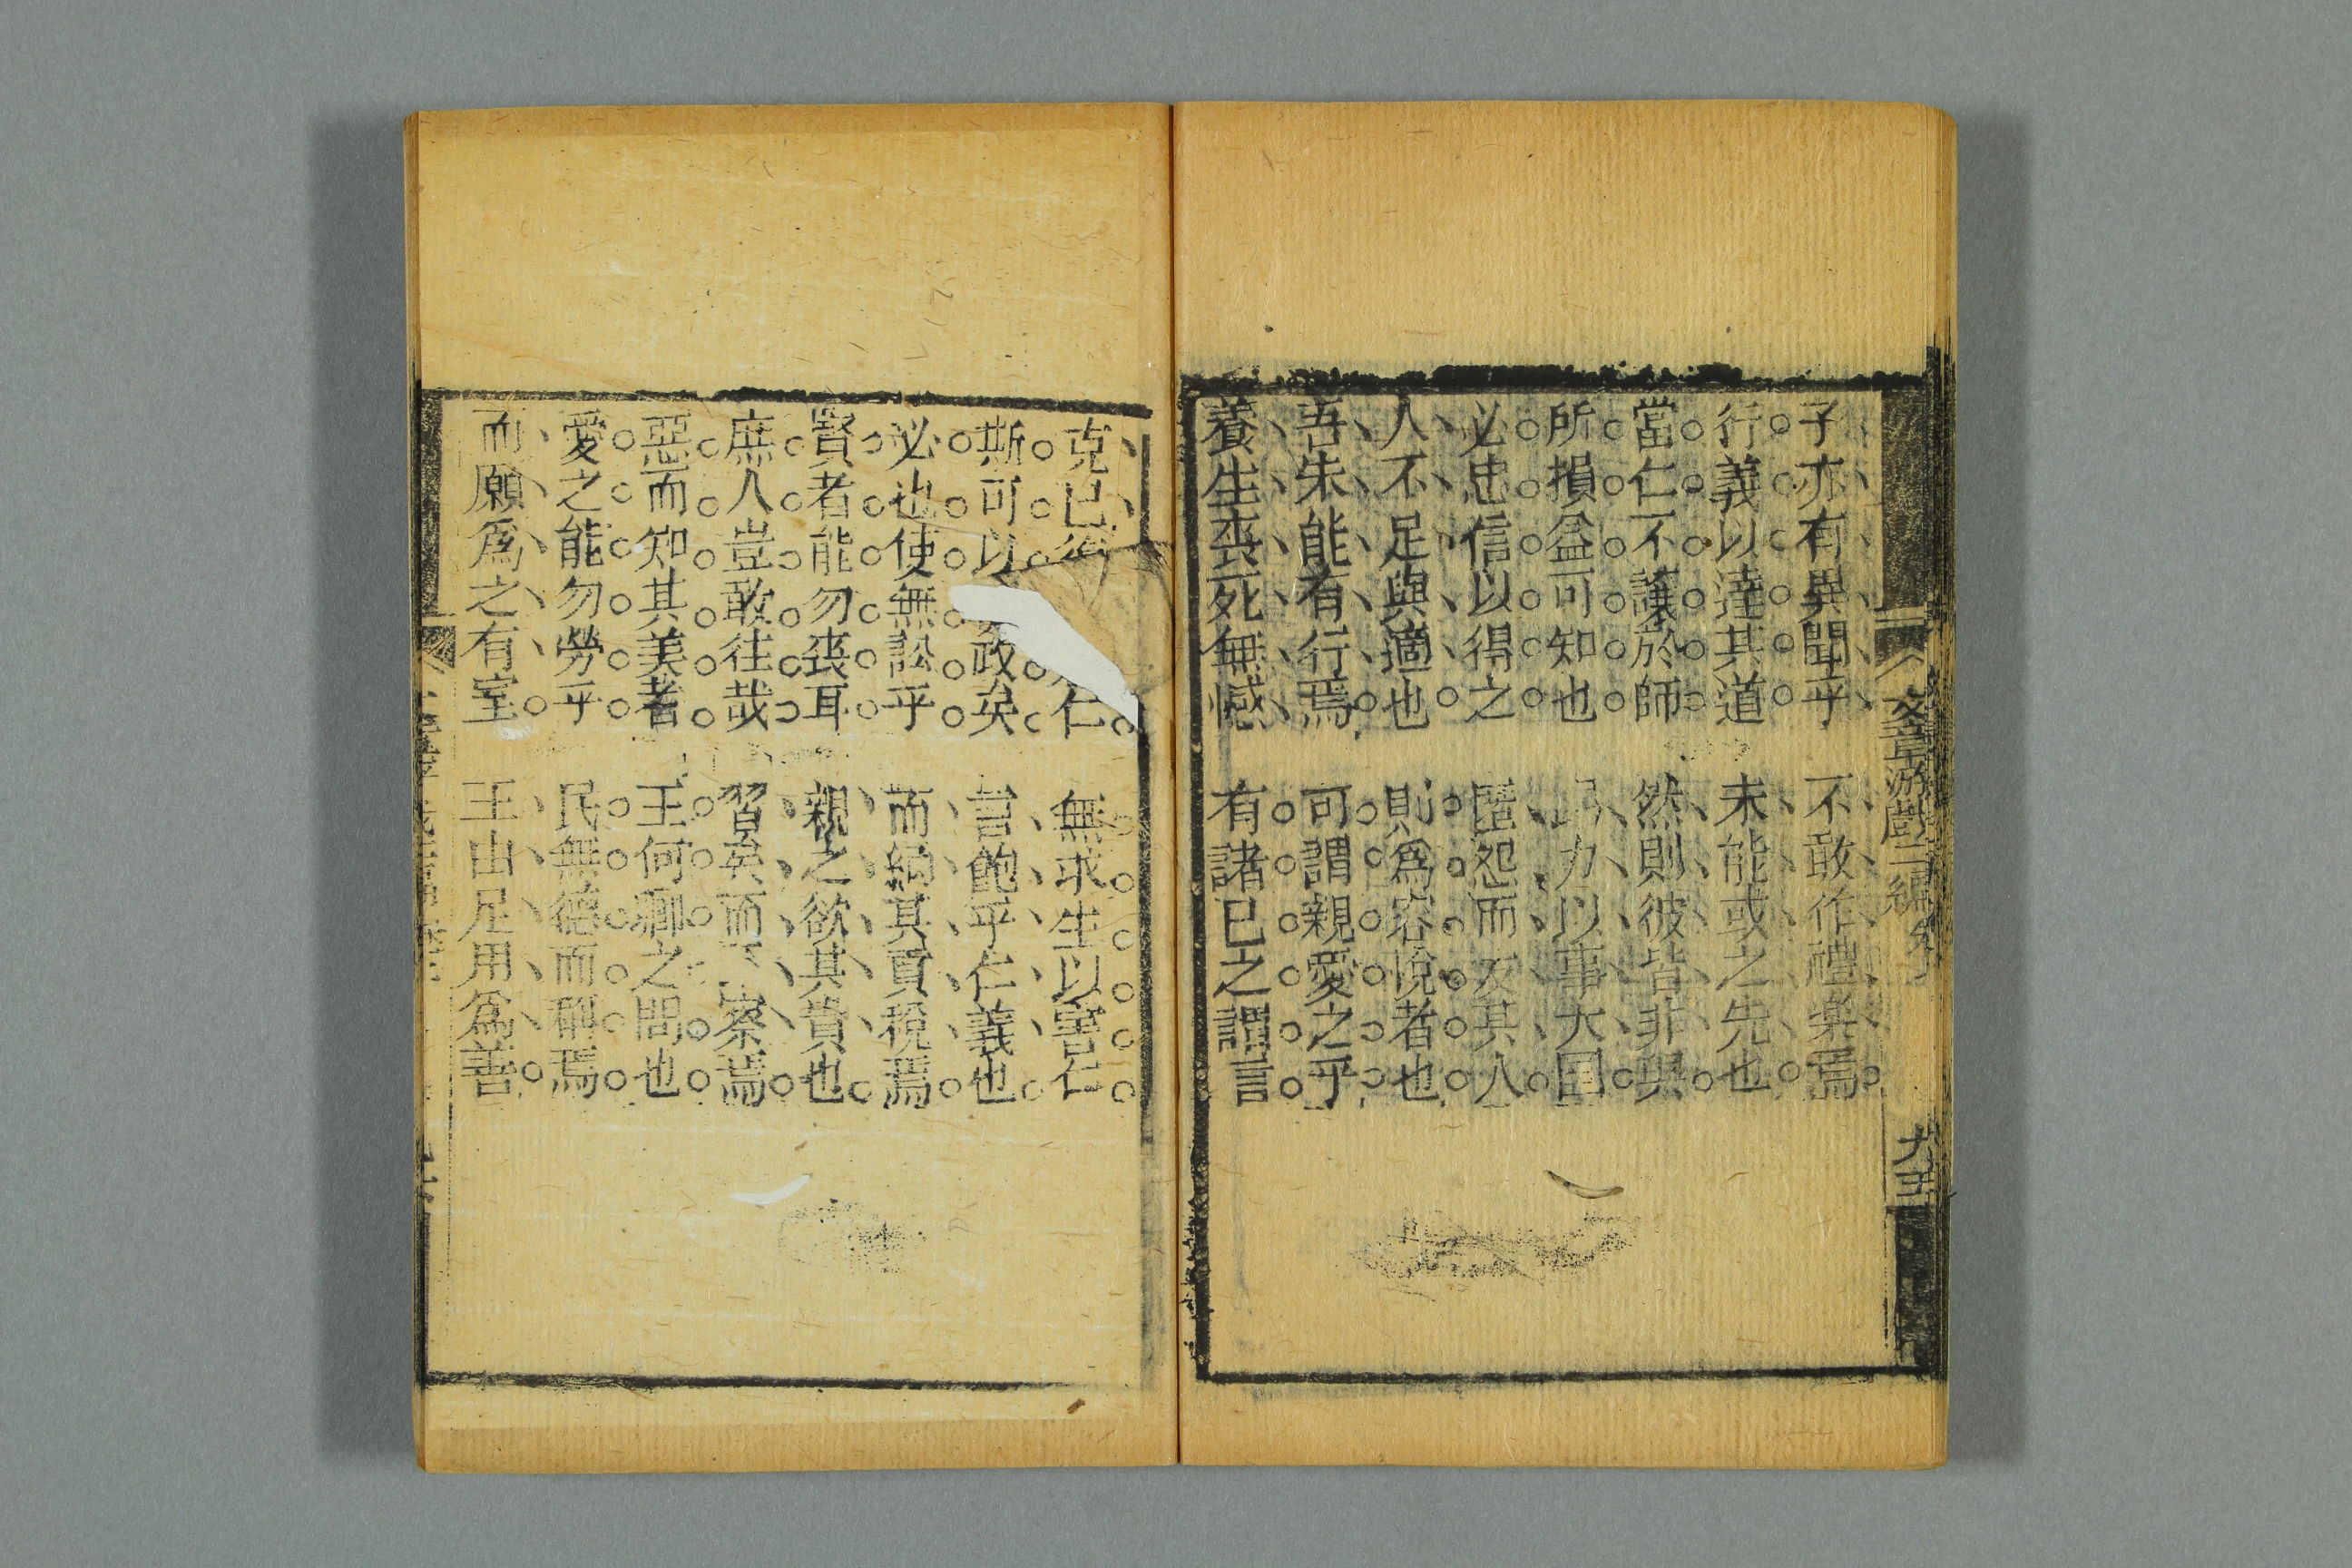 文章游戲二編
子亦有異聞乎 不敢作禮樂焉
行義以達其道 未能或之先也
當仁不讓於師 然則彼皆非與
所損益可知也 力以事大国
必忠信以得之 匿怨而友其人
人不足與適也 則爲容悅者也
吾未能有行焉 可謂親愛之乎
養生喪死無憾 有諸己之謂言
克己仁 無求生以害仁
斯可以政矣 言飽乎仁義也
必也使無訟乎 而納其貢稅焉
賢者能勿喪耳 親之欲其貴也
庶人豈敢往哉 習矣而不察焉
惡而知其美者 王何卿之問也
愛之能勿勞乎 民無德而稱焉
而願爲之有室 王由足用爲善